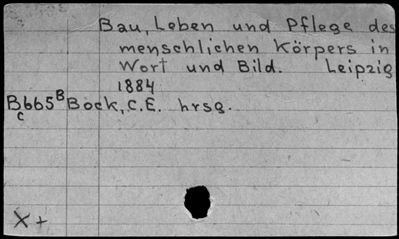 Bau, Leben und Pflege des
menschlichen Körpers in
Wort und Bild. Leipzig
1884
Bb65B Bock, C.E. hrsg.
c
X +